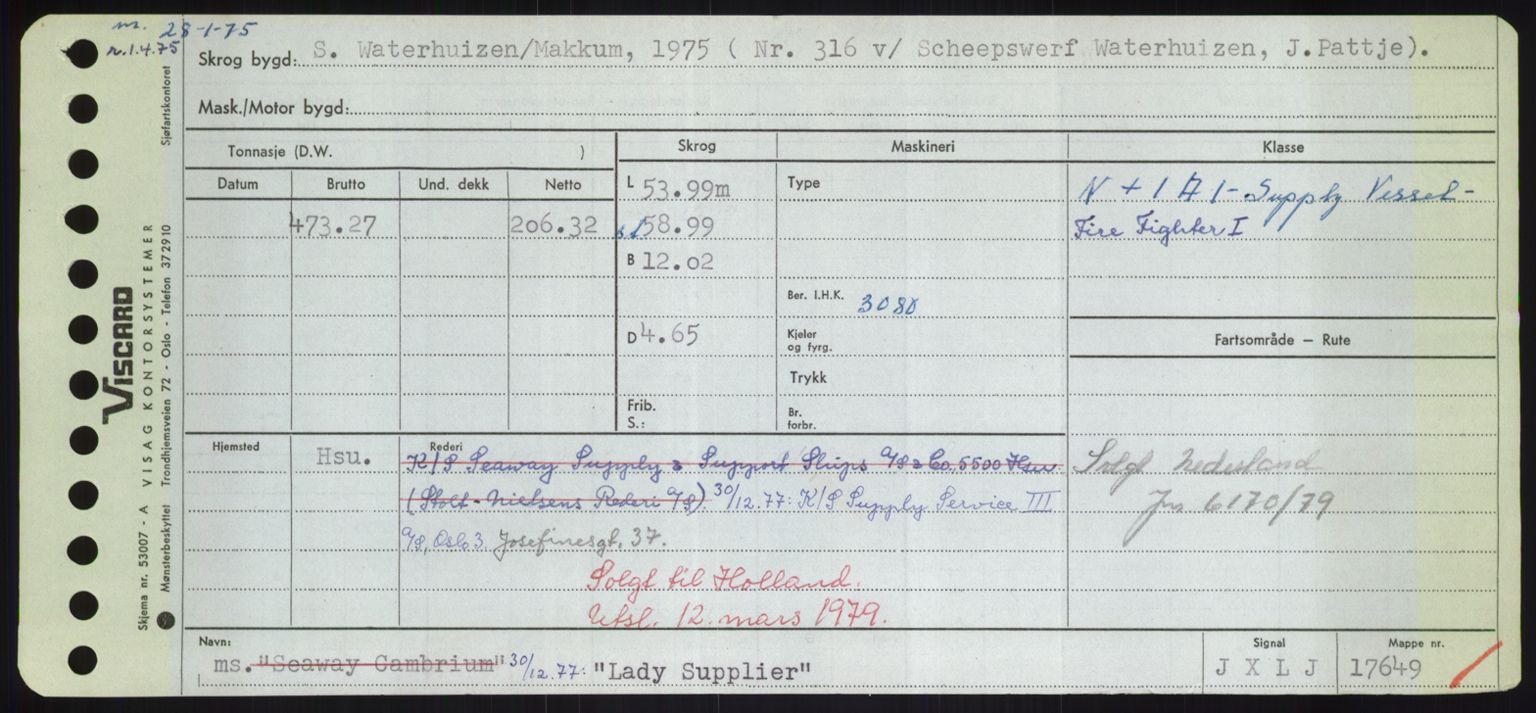 m. 28-1-75
n.1.4.75
Skrog bygd: S. Waterhuizen/Makkum, 1975 ( Nr. 316 v/ Scheepswerf Waterhuizen, J.Pattje).
Mask./Motor bygd:
Tonnasje (D.W. )
Skrog
Maskineri
Klasse
Datum Brutto Und. dekk Netto
L 53.99m
Type
N + 1 A 1 - Supply Vessel -
473.27 206.32
58.99
Fire Fighter I
B 12.02
Ber. I.H.K. 3080
D 4.65
Kjeler
og fyrg.
Fartsområde — Rute
Trykk
Frib.
S.:
Br.
forbr.
Hjemsted
Rederi
Hsu.
K/S Seaway Supply & Support Ships A/S & Co, 5500 Hsu
(Stolt-Nielsens Rederi A/S). 30/12.77: K/S Supply Service III
A/S, Oslo 3. Josefinesgt. 37.
Solgt til Holland.
Utsl. 12. mars 1979.
Solgt Nederland
Jnr 6170/79
Navn:
ms. "Seaway Cambrium" 30/12.77: "Lady Supplier"
Signal
J X L J
Mappe nr.
17649
VISCARD
VISAG KONTORSYSTEMER
Skjema nr. 53007 - A
Mønsterbeskyttet Trondhjemsveien 72 - Oslo - Telefon 372910
Sjøfartskontoret